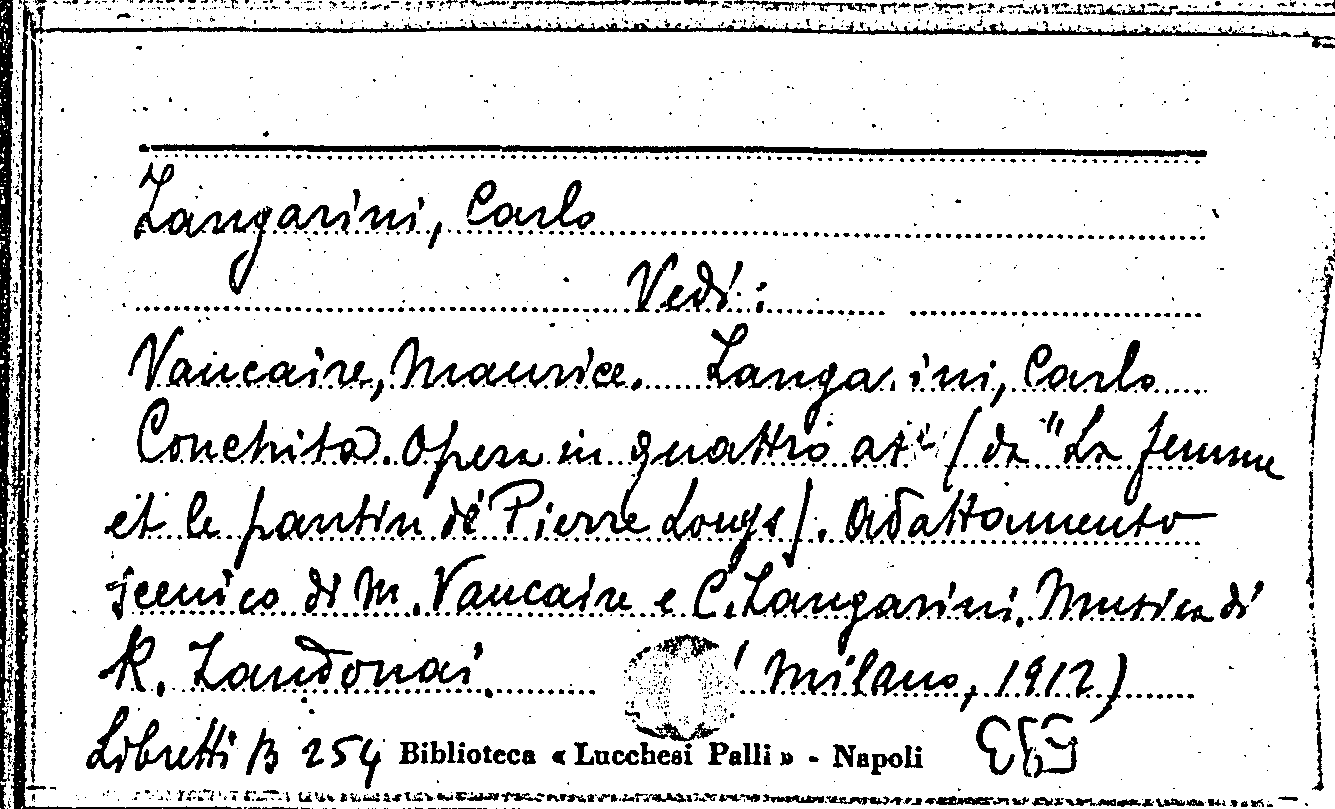 Zangarini, Carlo
Vedi:
Vaucaire, Maurice. Zangarini, Carlo
Conchita. Opera in quattro atti (da "La femme
et le pantin di Pierre Louys). Adattamento
scenico di M. Vaucaire e C. Zangarini. Musica di
R. Zandonai. (Milano, 1912)
Libretti B 254 Biblioteca « Lucchesi Palli » - Napoli